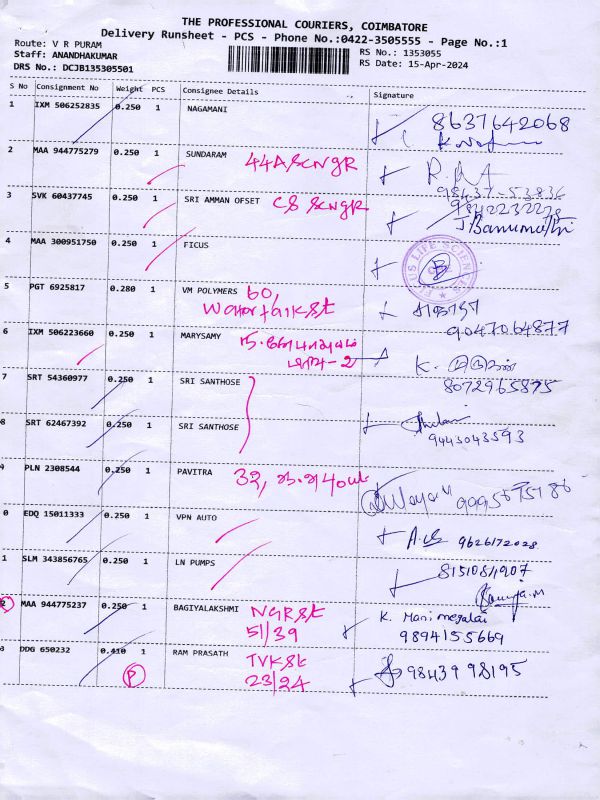 THE PROFESSIONAL COURIERS, COIMBATORE
Delivery Runsheet - PCS - Phone No.:0422-3505555 - Page No.:1
Route: V R PURAM
Staff: ANANDHAKUMAR
DRS No.: DCJB135305501
RS No.: 1353055
RS Date: 15-Apr-2024
S No Consignment No Weight PCS Consignee Details Signature
1 IXM 506252835 0.250 1 NAGAMANI 8637642068
2 MAA 944775279 0.250 1 SUNDARAM 44A SCNGR
98437-53836
3 SVK 60437745 0.250 1 SRI AMMAN OFSET C8 SCNGR
9842232228
J Banumathi
4 MAA 300951750 0.250 1 FICUS
5 PGT 6925817 0.280 1 VM POLYMERS 60,
9047064877
6 IXM 506223660 0.250 1 MARYSAMY
8072965875
7 SRT 54360977 0.250 1 SRI SANTHOSE
8 SRT 62467392 0.250 1 SRI SANTHOSE
9443043593
PLN 2308544 0.250 1 PAVITRA 32,
9995675186
0 EDQ 15011333 0.250 1 VPN AUTO
9626172028
1 SLM 343856765 0.250 1 LN PUMPS
8151084907
2 MAA 944775237 0.250 1 BAGIYALAKSHMI NGR St
51/39
K. Manimegalai
9894155669
3 DDG 650232 0.410 1 RAM PRASATH TVK St
23/24
98439 98195
P